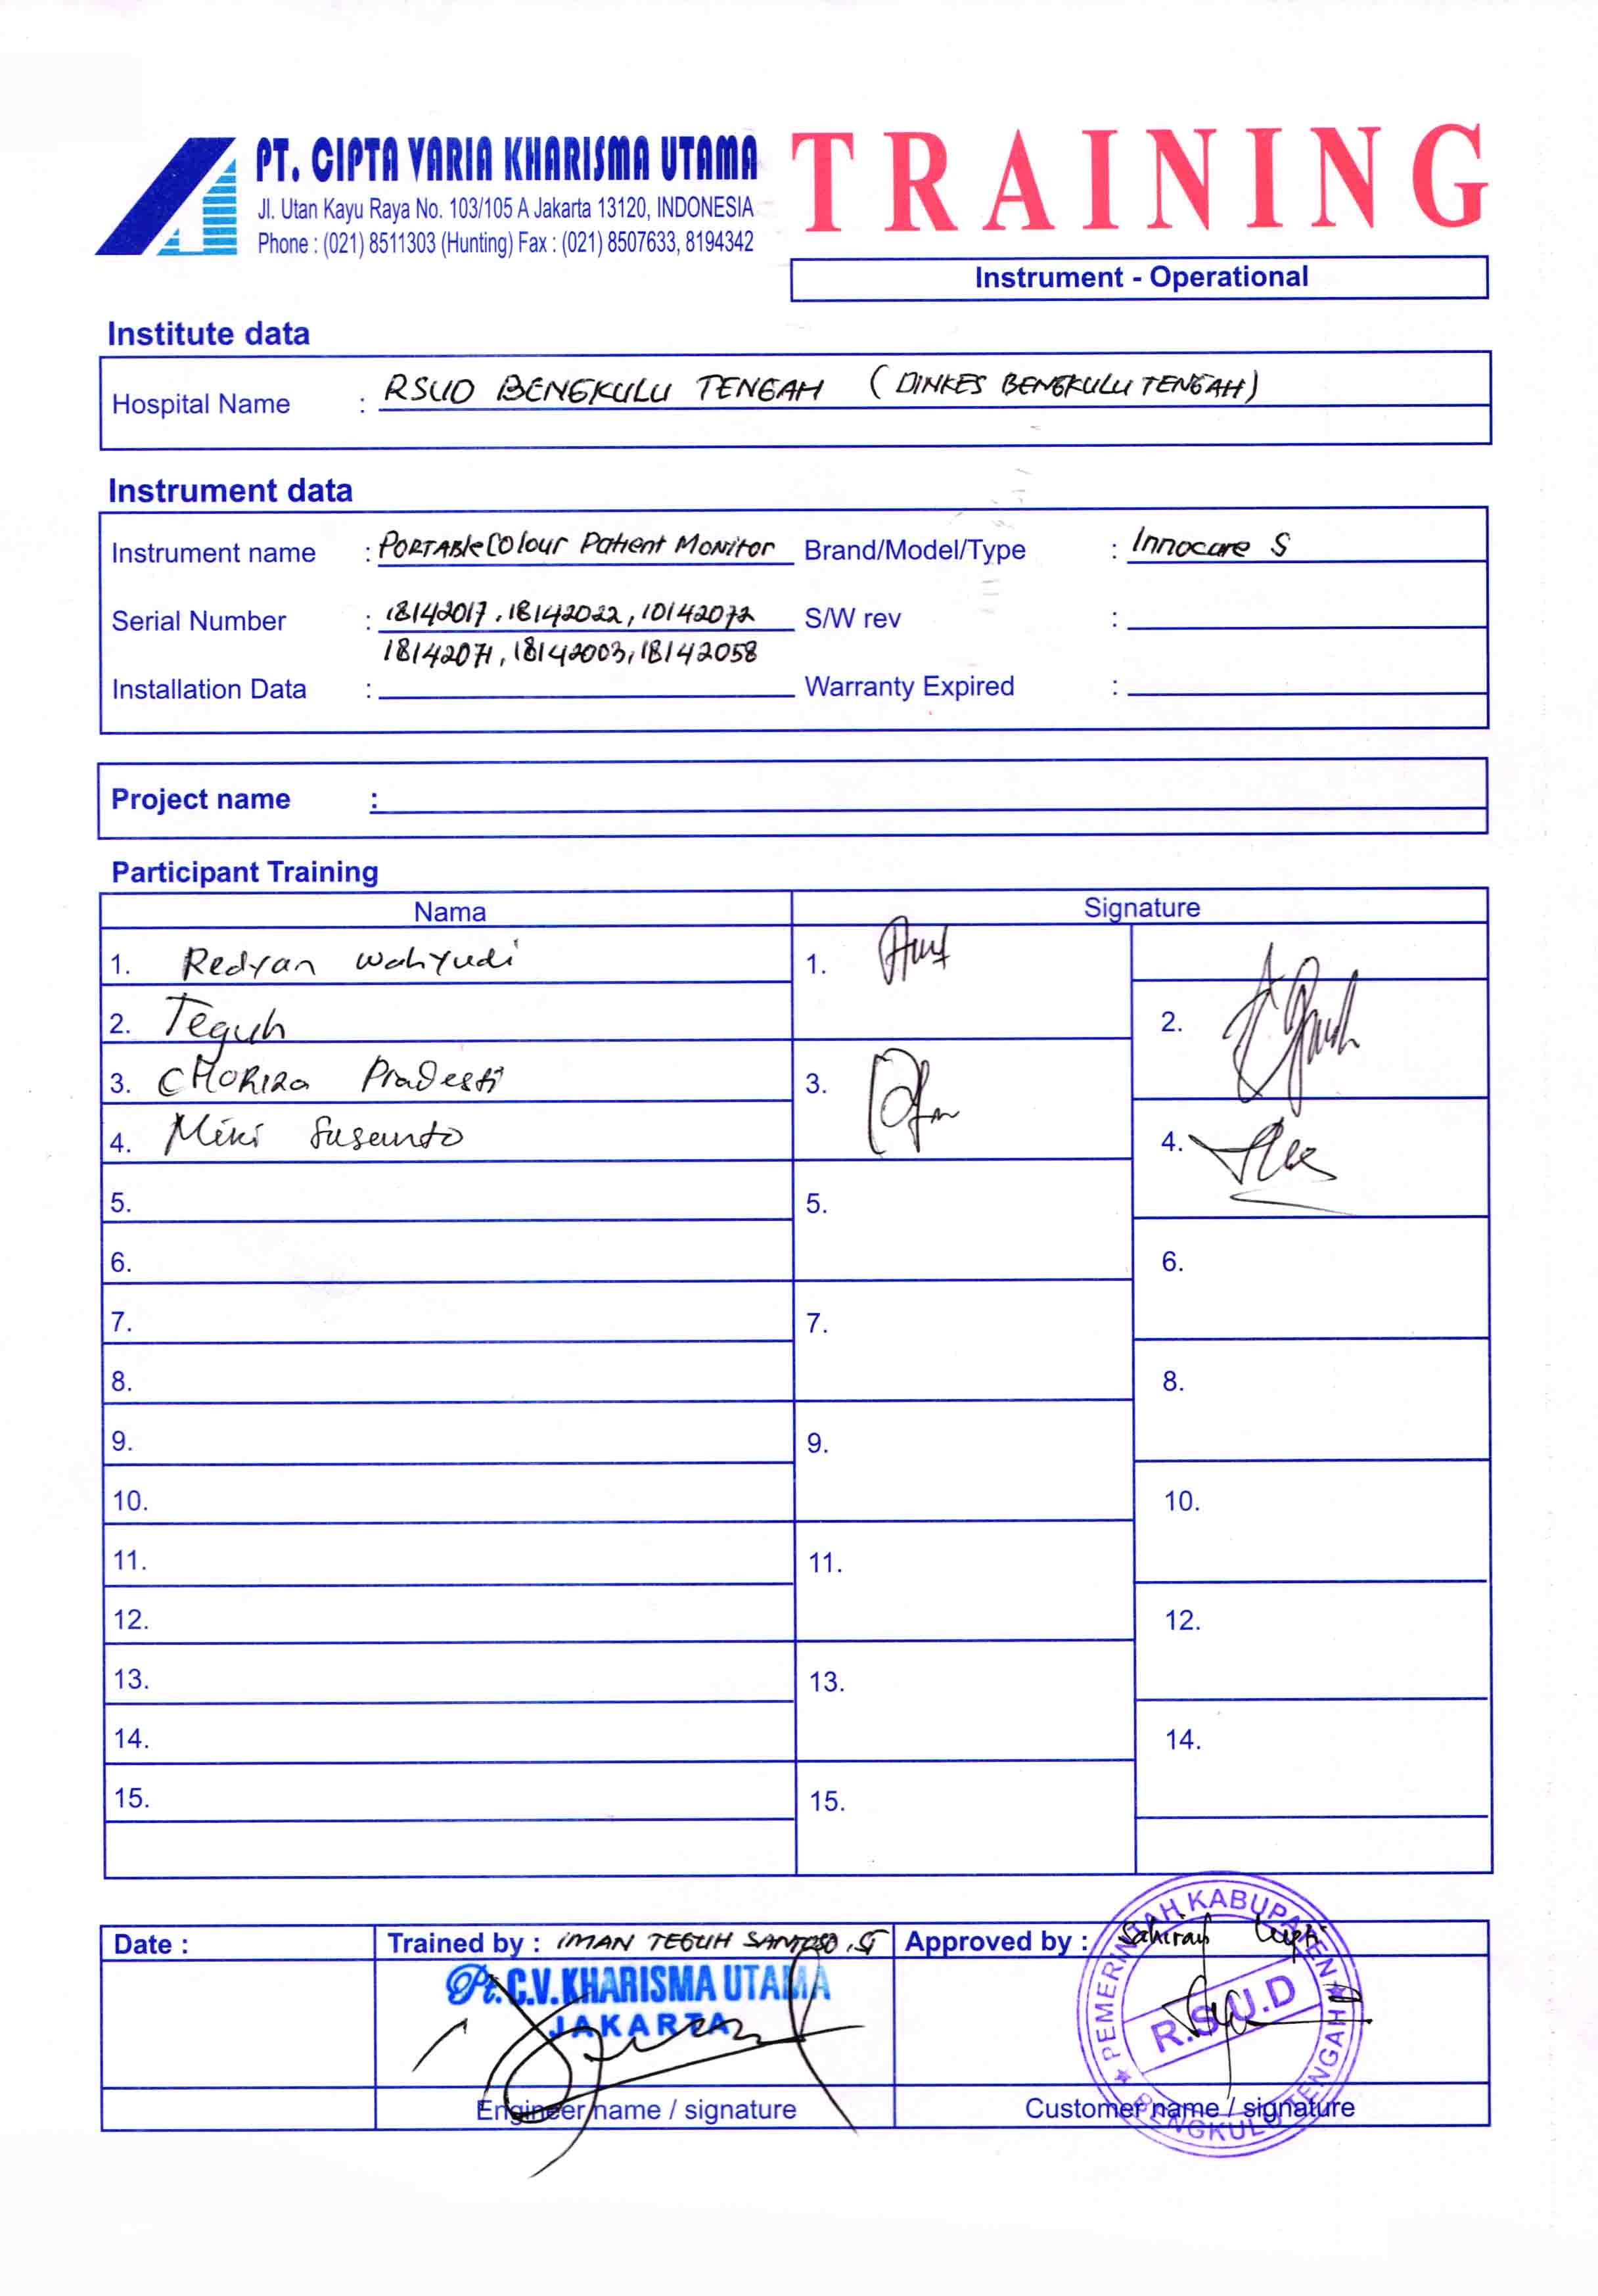 PT. CIPTA VARIA KHARISMA UTAMA
Jl. Utan Kayu Raya No. 103/105 A Jakarta 13120, INDONESIA
Phone : (021) 8511303 (Hunting) Fax : (021) 8507633, 8194342
TRAINING
Instrument - Operational
Institute data
Hospital Name : RSUD BENGKULU TENGAH (DINKES BENGKULU TENGAH)
Instrument data
Instrument name : PORTABLE COLOUR Patient MONITOR Brand/Model/Type : Innocare S
Serial Number : 18142017, 18142022, 10142072 S/W rev :
18142071, 18142003, 18142058
Installation Data : Warranty Expired :
Project name :
Participant Training
Nama Signature
1. Redyan Wahyudi 1.
2. Teguh 2.
3. CHORIZA Pradesti 3.
4. Miki Susanto 4.
5. 5.
6. 6.
7. 7.
8. 8.
9. 9.
10. 10.
11. 11.
12. 12.
13. 13.
14. 14.
15. 15.
Date : Trained by : IMAN TEGUH SANTOSO, ST Approved by :
Pt. C.V. KHARISMA UTAMA
JAKARTA
PEMERINTAH KABUPATEN
R.S.U.D
BENGKULU TENGAH
Engineer name / signature Customer name / signature